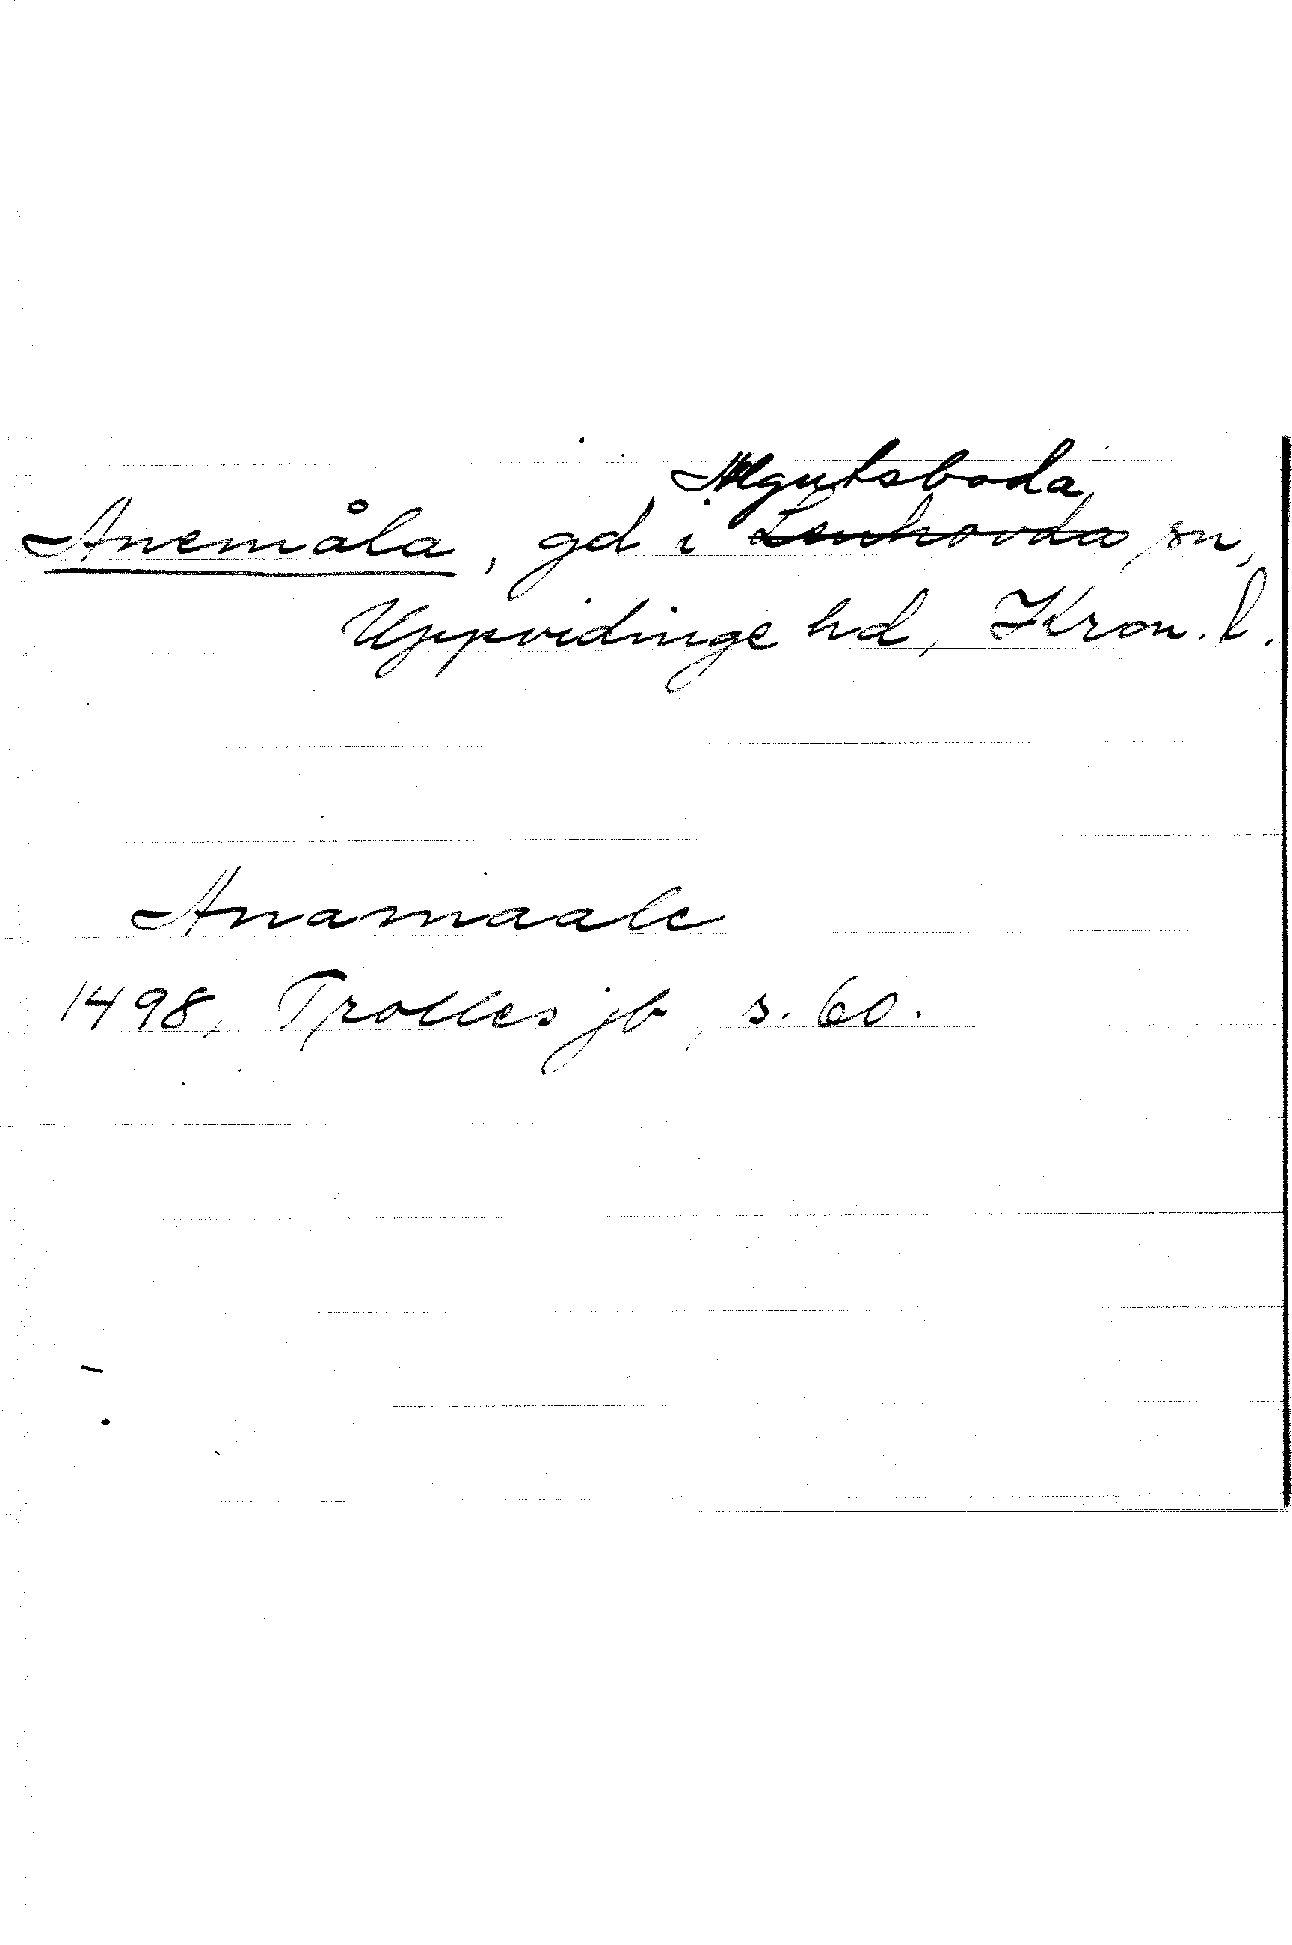 Algutsboda
Anemåla, gd i Lenhovda sn,
Uppvidinge hd, Kron. l.
Anamaale
1498, Trolles jb, s. 60.